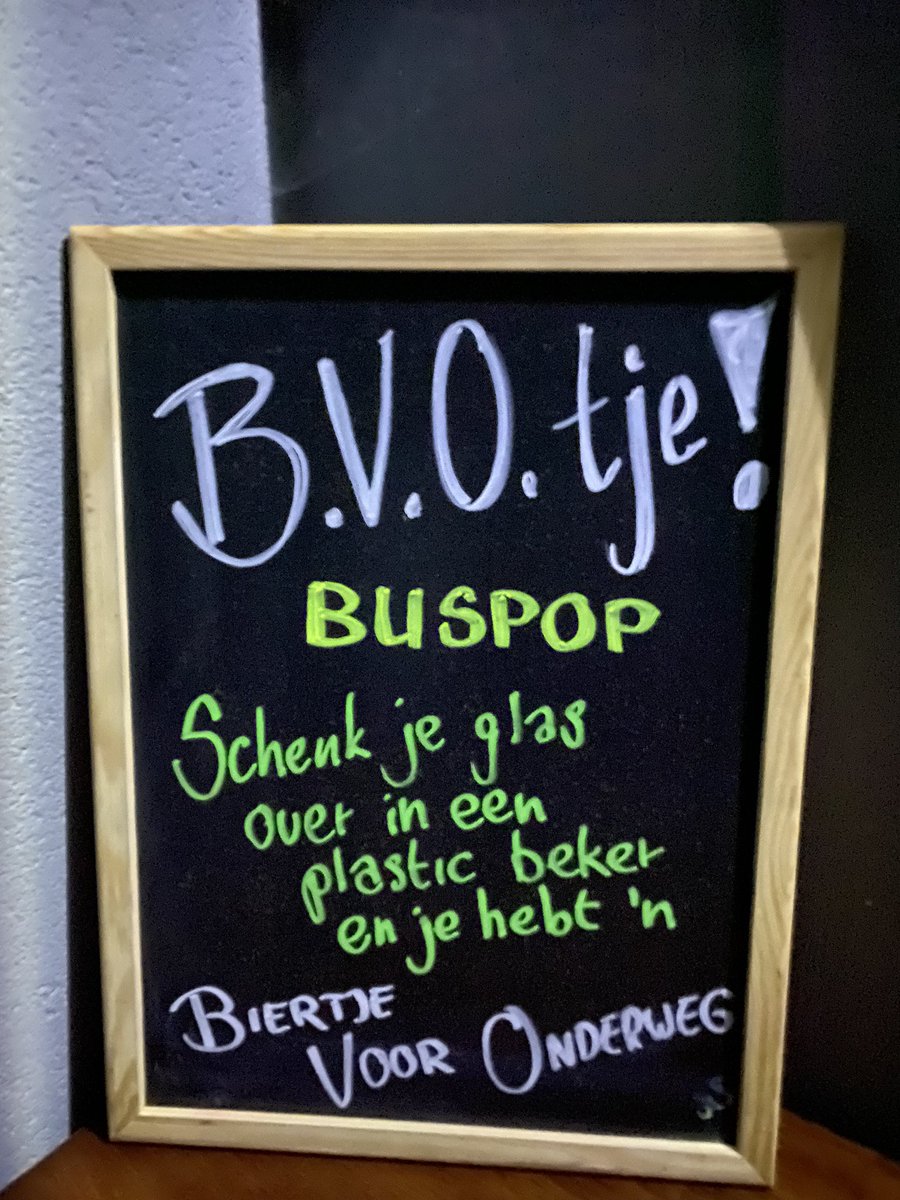 B.V.O.tje!
BUSPOP
Schenk je glas
over in een
plastic beker
en je hebt 'n
BIERTJE
VOOR ONDERWEG